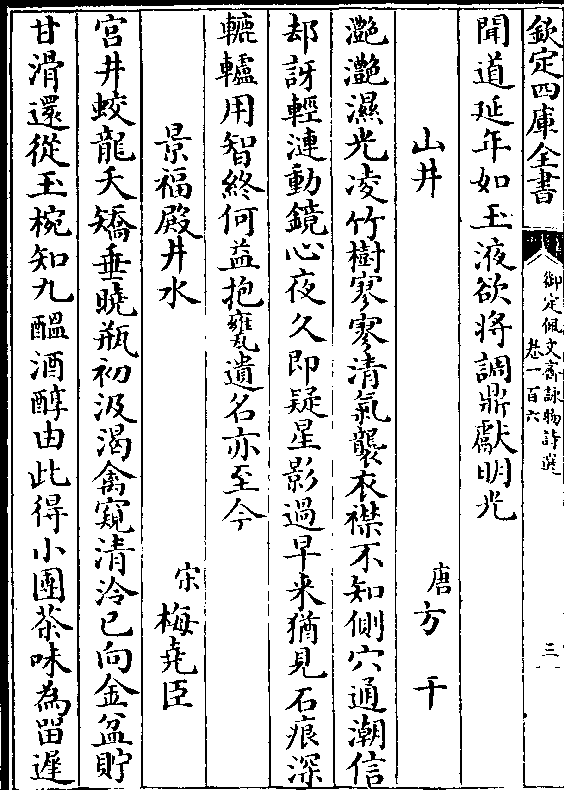 欽定四庫全書
御定佩文齋詠物詩選
卷一百六
三
聞道延年如玉液欲將調鼎獻明光
山井
唐方干
灔灔濕光凌竹樹寥寥清氣襲衣襟不知側穴通潮信
却訝輕漣動鏡心夜久即疑星影過早來猶見石痕深
轆轤用智終何益抱甕遺名亦至今
景福殿井水
宋梅堯臣
宮井蛟龍夭矯垂曉瓶初汲渴禽窺清泠已向金盆貯
甘滑還從玉椀知九醖酒醇由此得小團茶味為留遲